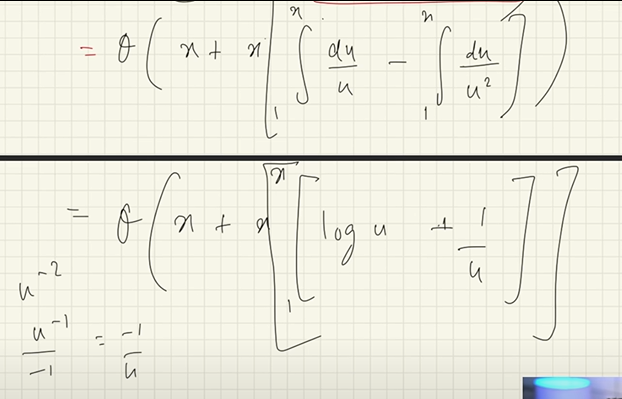 = θ ( x + x [ ∫₁ˣ du/u − ∫₁ˣ du/u² ] )
= θ ( x + x [ ₁ˣ[ log u + 1/u ] ] ]
u⁻²
u⁻¹/−1 = −1/u